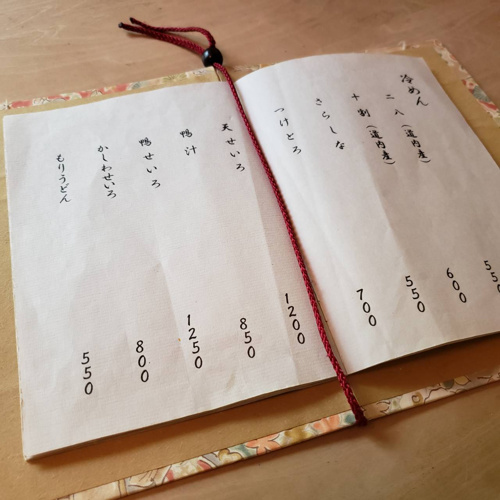 冷めん
二八(道内産) 550
十割(道内産) 600
さらしな 550
つけとろ 700
天せいろ 1200
鴨汁 850
鴨せいろ 1250
かしわせいろ 800
もりうどん 550